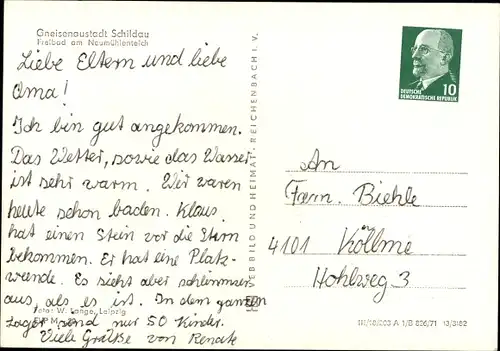 Gneisenaustadt Schildau
Freibad am Neumühlenteich
Liebe Eltern und liebe
Oma!
Ich bin gut angekommen.
Das Wetter, sowie das Wasser
ist sehr warm. Wir waren
heute schon baden. Klaus
hat einen Stein vor die Stirn
bekommen. Er hat eine Platz-
wunde. Es sieht aber schlimmer
aus, als es ist. In dem ganzen
Lager sind nur 50 Kinder.
Viele Grüße von Renate
Foto: W. Lange, Leipzig
BILD UND HEIMAT REICHENBACH I. V.
10
DEUTSCHE
DEMOKRATISCHE REPUBLIK
An
Fam. Biehle
4101 Köllme
Hohlweg 3
III/18/203 A 1/B 826/71 13/3182